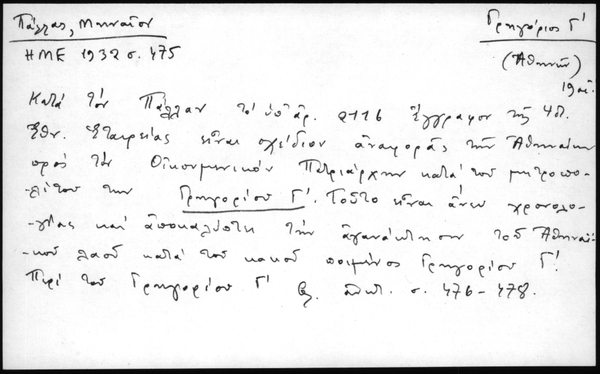 Πάλλας, Μηναῖον
Γρηγόριος Γ'
ΗΜΕ 1932 σ. 475
(Ἀθηνῶν)
19 αἰ.
Κατὰ τὸν Πάλλαν τὸ ὑπ' ἀρ. 2116 ἔγγραφον τῆς
Ἐθν. Ἑταιρείας εἶναι σχέδιον ἀναφορᾶς τῶν Ἀθηναίων
πρὸς τὸν Οἰκουμενικὸν Πατριάρχην κατὰ τοῦ μητροπο-
-λίτου των Γρηγορίου Γ'. Τοῦτο εἶναι ἄνευ χρονολο-
-γίας καὶ ἀποκαλύπτει τὴν ἀγανάκτησιν τοῦ Ἀθηναϊ-
-κοῦ λαοῦ κατὰ τοῦ κακοῦ ποιμένος Γρηγορίου Γ'.
Περὶ τοῦ Γρηγορίου Γ' βλ. σ. 476-478.